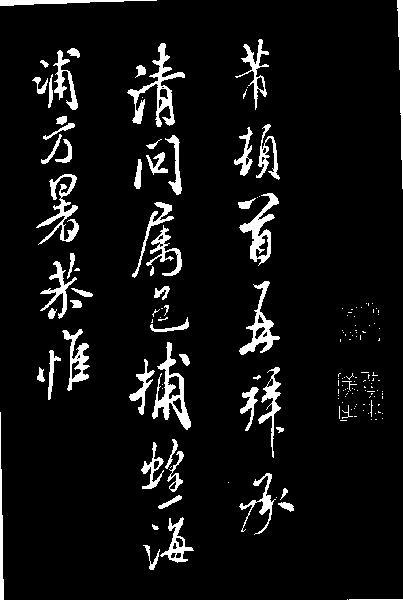 芾頓首再拜承
清問属邑捕蝗海
浦方暑恭惟